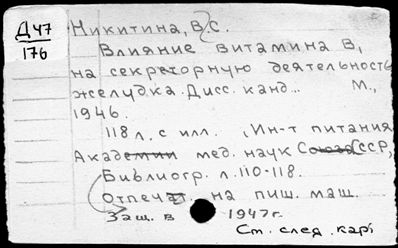 Д47
176
Никитина, В.С.
Влияние витамина B₁
на секреторную деятельность
желудка. Дисс. канд... М.,
1946.
118 л. с илл. (Ин-т питания
Академии мед. наук Союза ССР,
Библиогр. л. 110-118.
отпечат. на пиш. маш.
Защ. в 1947г.
См. след. карт